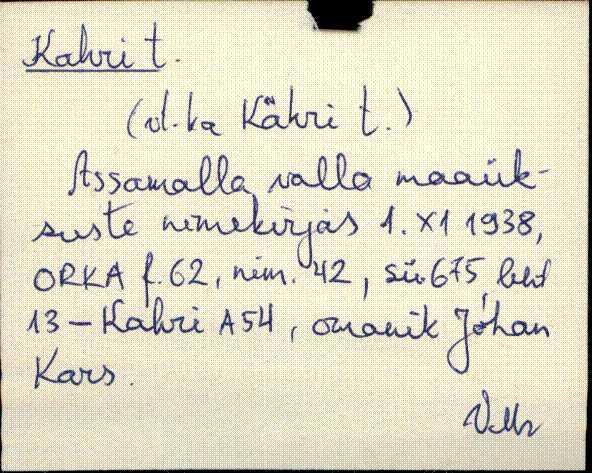 Kahri t.
(vt. ka Kähri t.)
Assamalla valla maaük-
suste nimekirjas 1. XI 1938,
ORKA f. 62, nim. 42, sü 675, leht
13 – Kahri A54, omanik Johan
Kars.